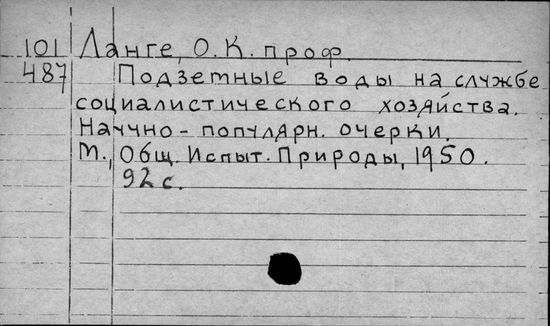 101 Ланге, О.К. проф.
487 Подземные воды на службе
социалистического хозяйства.
Научно-популярн. очерки.
М., Общ. Испыт. Природы, 1950.
92 с.